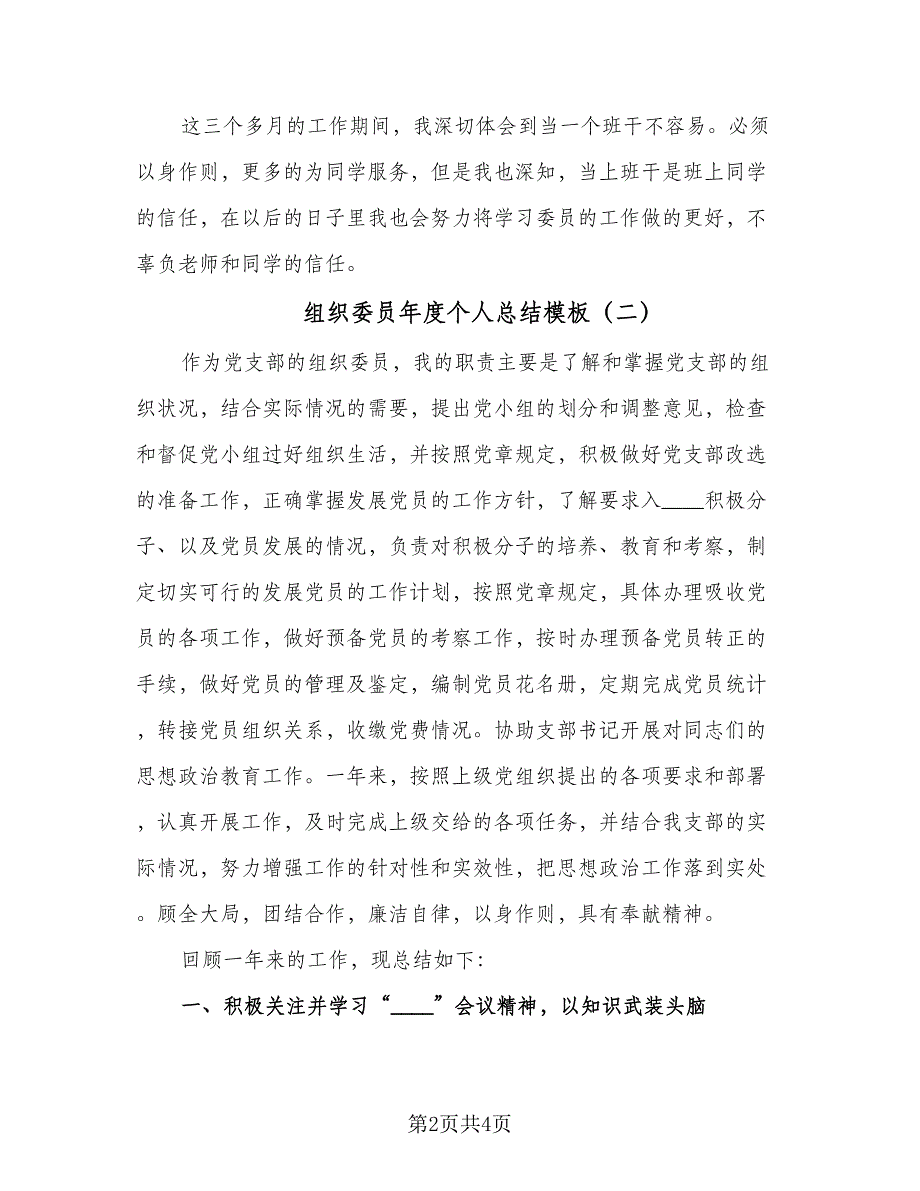 这三个多月的工作期间，我深切体会到当一个班干不容易。必须
以身作则，更多的为同学服务，但是我也深知，当上班干是班上同学
的信任，在以后的日子里我也会努力将学习委员的工作做的更好，不
辜负老师和同学的信任。
组织委员年度个人总结模板（二）
作为党支部的组织委员，我的职责主要是了解和掌握党支部的组
织状况，结合实际情况的需要，提出党小组的划分和调整意见，检查
和督促党小组过好组织生活，并按照党章规定，积极做好党支部改选
的准备工作，正确掌握发展党员的工作方针，了解要求入____积极分
子、以及党员发展的情况，负责对积极分子的培养、教育和考察，制
定切实可行的发展党员的工作计划，按照党章规定，具体办理吸收党
员的各项工作，做好预备党员的考察工作，按时办理预备党员转正的
手续，做好党员的管理及鉴定，编制党员花名册，定期完成党员统计
，转接党员组织关系，收缴党费情况。协助支部书记开展对同志们的
思想政治教育工作。一年来，按照上级党组织提出的各项要求和部署
，认真开展工作，及时完成上级交给的各项任务，并结合我支部的实
际情况，努力增强工作的针对性和实效性，把思想政治工作落到实处
。顾全大局，团结合作，廉洁自律，以身作则，具有奉献精神。
回顾一年来的工作，现总结如下：
一、积极关注并学习“____”会议精神，以知识武装头脑
第2页共4页